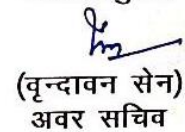 (वृन्दावन सेन)
अवर सचिव